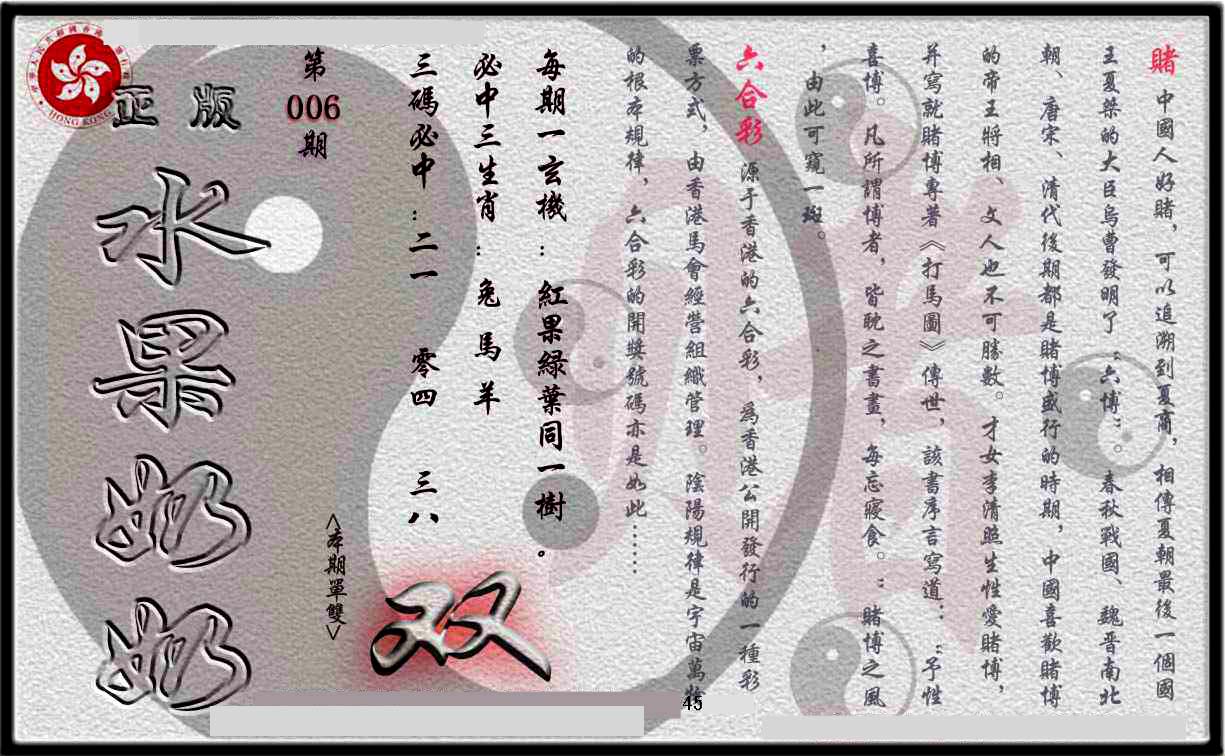 賭 中國人好賭，可以追溯到夏商，相傳夏朝最後一個國
王夏桀的大臣烏曹發明了“六博”。春秋戰國、魏晋南北
朝、唐宋、清代後期都是賭博盛行的時期，中國喜歡賭博
的帝王將相、文人也不可勝數。才女李清照生性愛賭博，
并寫就賭博專著《打馬圖》傳世，該書序言寫道：“予性
喜博。凡所謂博者，皆耽之書畫，每忘寢食。”賭博之風
，由此可窺一斑。
六合彩 源于香港的六合彩，為香港公開發行的一種彩
票方式，由香港馬會經營組織管理。陰陽規律是宇宙萬物
的根本規律，六合彩的開獎號碼亦是如此……
每期一玄機：紅果綠葉同一樹。
必中三生肖：兔 馬 羊
三碼必中：二一 零四 三八
<本期單雙>
双
第
006
期
正版
水果奶奶
HONG KONG
45